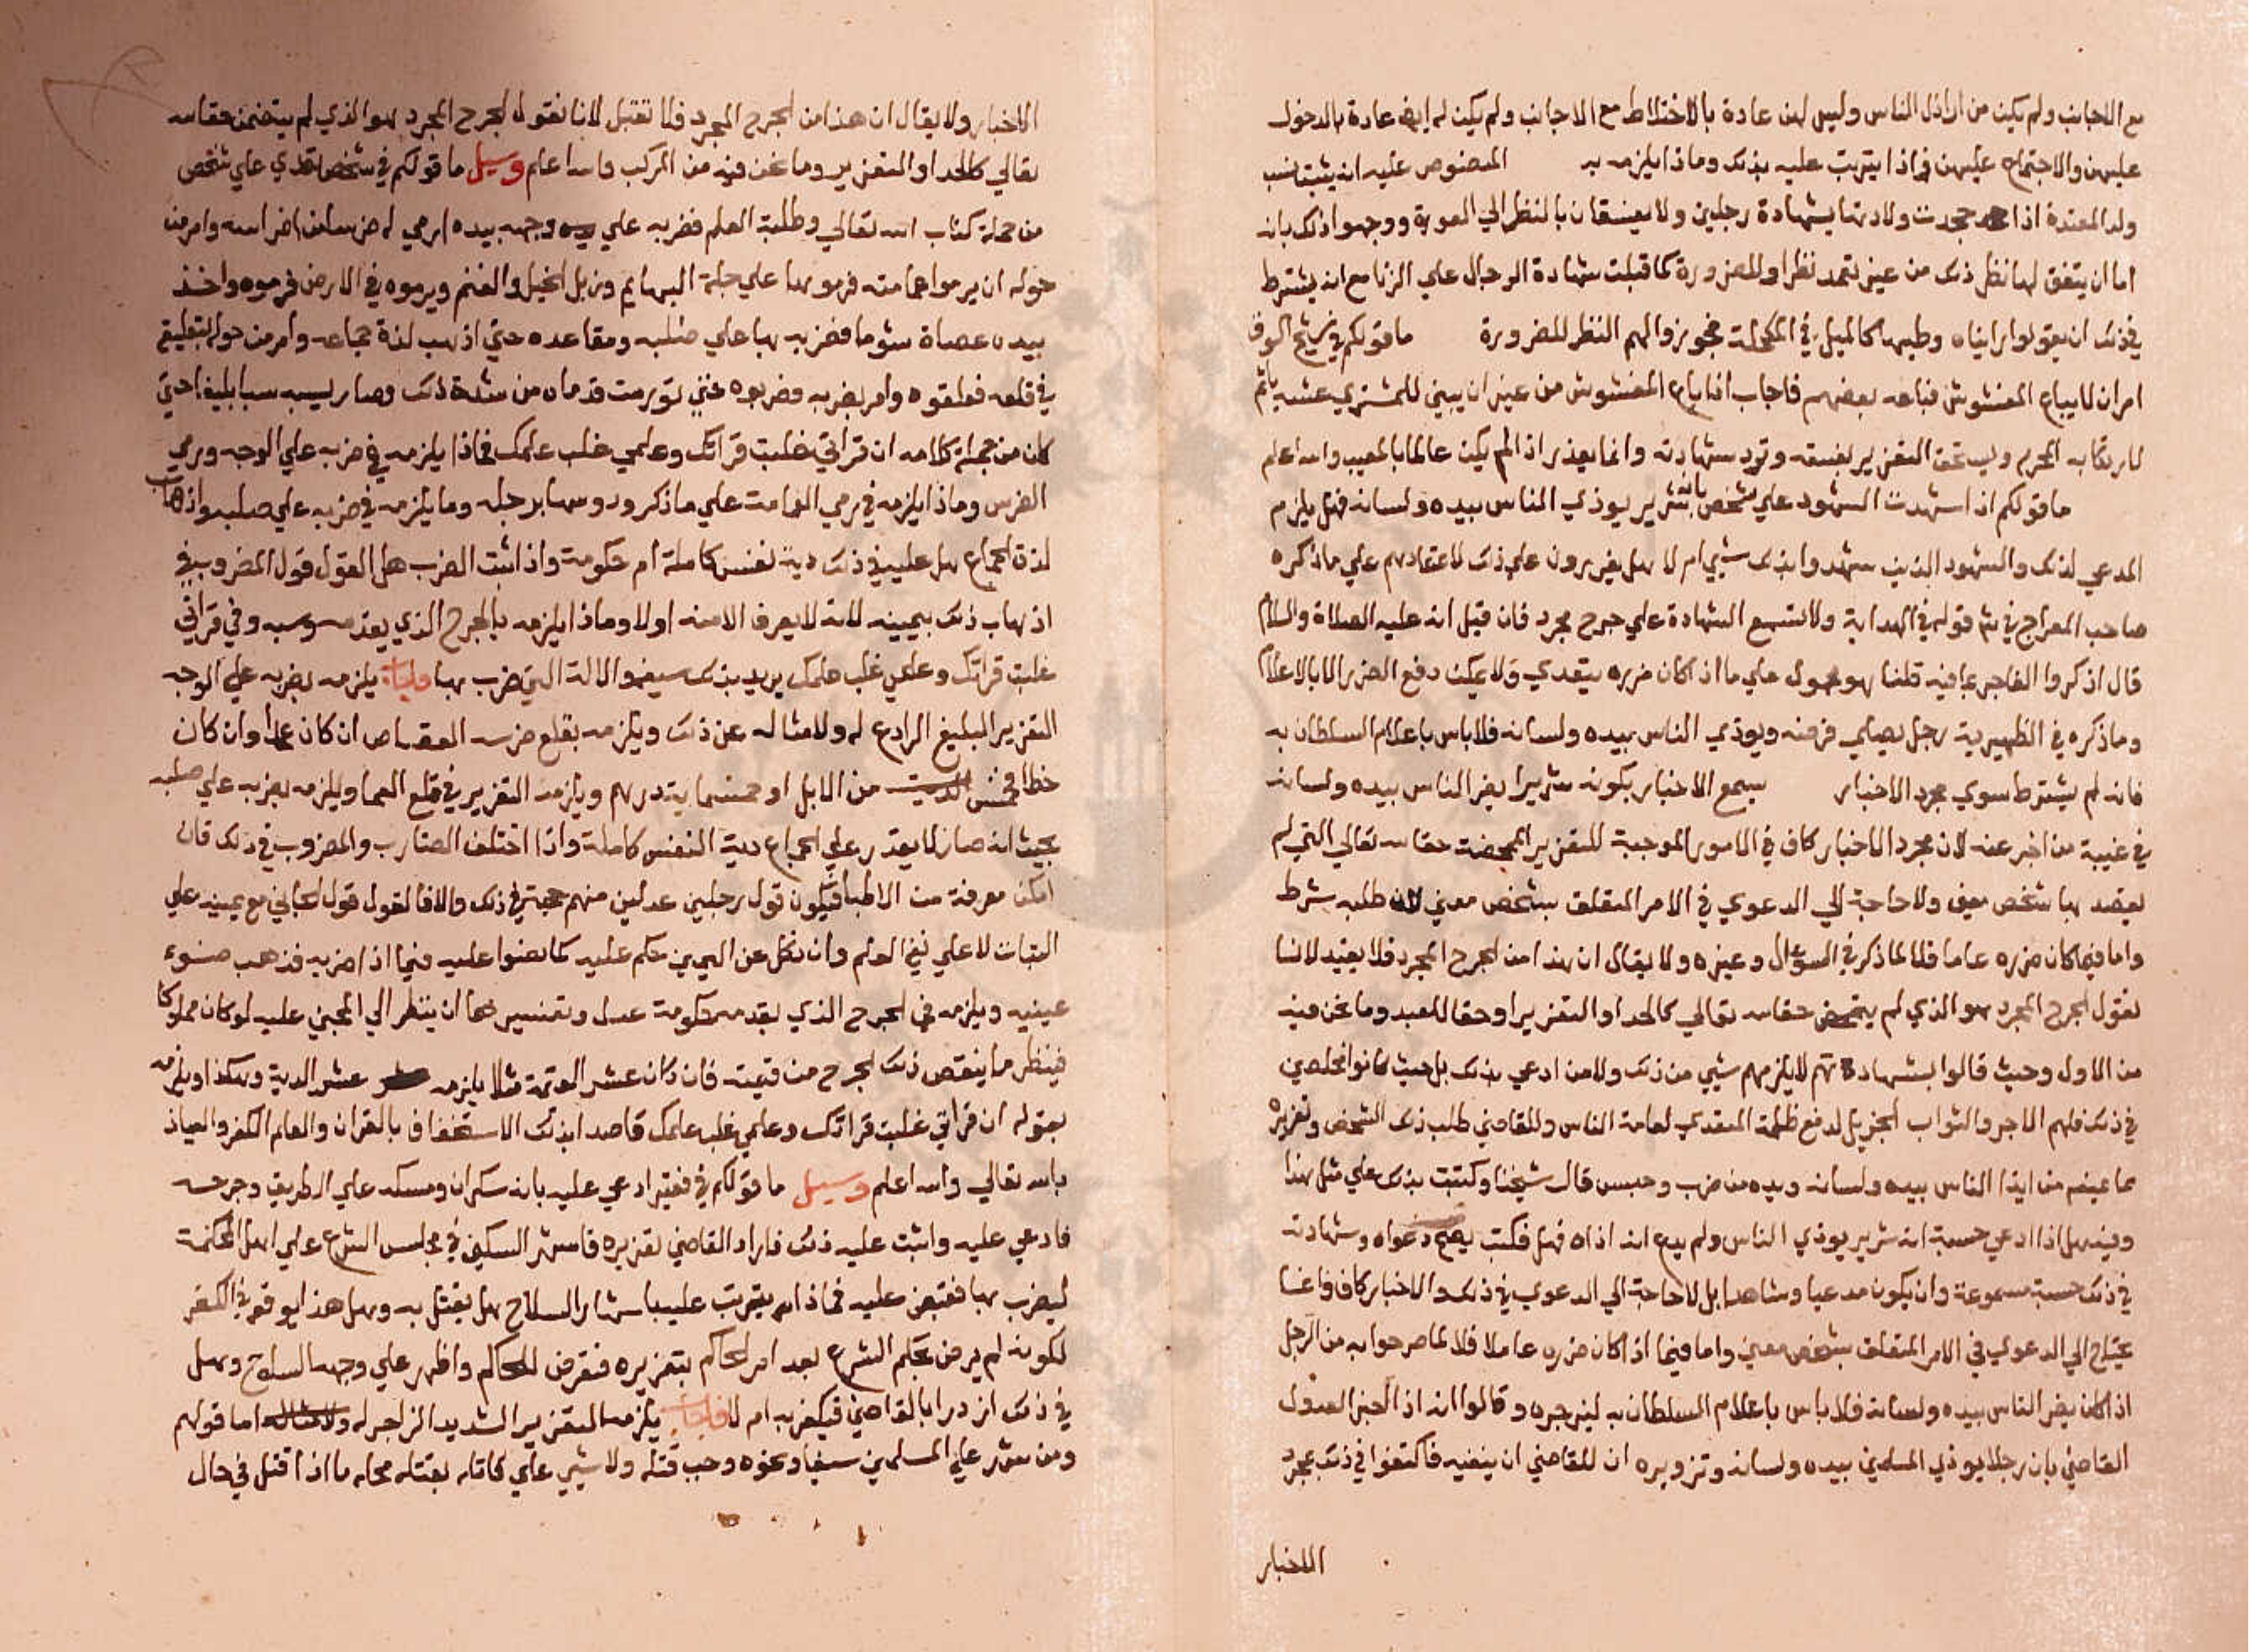 مع الاجانب ولم يكن من اراذل الناس وليس لهن عادة بالاختلاط مع الاجانب ولم يكن له ايضا عادة بالدخول
عليهن والاجتماع عليهن فماذا يترتب عليه بذلك وماذا يلزمه به المنصوص عليه انه يثبت نسب
ولد المعتدة اذا جحدت ولادتها بشهادة رجلين ولا يفسقان بالنظر الي العورة ووجهوا ذلك بانه
اما ان يتفق لهما نظر ذلك من غير تعمد نظر او للضرورة كما قبلت شهادة الرجال علي الزنا مع انه يشترط
في ذلك ان يقولوا رايناه وطيها كالميل في المكحلة فجوز والهم النظر للضرورة ما قولكم في شيخ
امر ان لا يباع المغشوش فباعه بعضهم فاجاب اذا باع المغشوش من غير ان يبين للمشتري غشه ياثم
لارتكابه المحرم ويستحق التعزير بفسقه وترد شهادته وانما يعذر اذا لم يكن عالما بالعيب والله اعلم
ما قولكم اذا شهدت الشهود علي شخص بانه شرير يوذي الناس بيده ولسانه فهل يلزم
المدعي لذلك والشهود الذين شهدوا بذلك شيي ام لا هل يعزرون علي ذلك لاعتمادهم علي ما ذكره
صاحب المعراج في شرح قوله في الهداية ولا تسمع الشهادة علي جرح مجرد فان قيل انه عليه الصلاة والسلام
قال اذكروا الفاجر بما فيه قلنا هو محمول علي ما اذا كان ضرره يتعدي ولا يمكن دفع الضرر الا بالاعلام
وما ذكره في الظهيرية رجل يصلي فرضه ويوذي الناس بيده ولسانه فلا باس باعلام السلطان به
فانه لم يشترط سوي مجرد الاخبار يسمع الاخبار بكونه شريرا يضر الناس بيده ولسانه
في غيبة من اخبر عنه لان مجرد الاخبار كاف في الامور الموجبة للتعزير المتمحضة حقا لله تعالي التي لم
يقصد بها شخص معين ولا حاجة الي الدعوي في الامر المتعلق بشخص معين لان طلبه شرط
واما فيما كان ضرره عاما فلا لما ذكر في السؤال وغيره ولا يقال ان هذا من الجرح المجرد فلا يفيد لانا
نقول الجرح المجرد هو الذي لم يتمحض حقا لله تعالي كالحد او التعزير او حقا للعبد وما نحن فيه
من الاول وحيث قالوا بشهادتهم لا يلزمهم شيي من ذلك ولا من ادعي بذلك بل حيث كانوا مخلصين
في ذلك فلهم الاجر والثواب الجزيل لدفع ظلمة المتعدي لعامة الناس وللقاضي طلب ذلك الشخص وتعزيره
بما يمنعه من ايذا الناس بيده ولسانه ويده من ضرب وحبس قال شيخنا وكتبت بذلك علي مثل هذا
وفيه هل اذا ادعي حسبة انه شرير يوذي الناس ولم يدع انه اذاه فهل فكتب يصح دعواه وشهادته
في ذلك حسبة مسموعة وان يكون مدعيا وشاهدا بل لا حاجة الي الدعوي في ذلك والاخبار كاف وانما
يحتاج الي الدعوي في الامر المتعلق بشخص معين واما فيما اذا كان ضرره عاملا فلا لما صرحوا به من الرجل
اذا كان يضر الناس بيده ولسانه فلا باس باعلام السلطان به ليزجره وقالوا انه اذا اخبر العدول
القاضي بان رجلا يوذي المسلمين بيده ولسانه وتزويره ان للقاضي ان ينفيه فاكتفوا في ذلك بمجرد
الاخبار
الاخبار ولا يقال ان هذا من الجرح المجرد فلا تقبل لانا نقول الجرح المجرد هو الذي لم يتضمن حقا لله
تعالي كالحد او التعزير وما نحن فيه من المركب والله اعلم وسيل ما قولكم في شخص تعدي علي شخص
من حملة كتاب الله تعالي وطلبة العلم فضربه علي وجهه بيده ارمي له ضرسا من اضراسه وامر من
حوله ان يرموا عمامته فرموها علي جلة البهايم وزبل الخيل والغنم ويرموه في الارض فرموه واخذ
بيده عصاة شوما فضربه بها علي صلبه ومقاعده حتي اذهب لذة جماعه وامر من حوله بتعليقه
في قلعه فعلقوه وامر بضربه فضربوه حتي تورمت قدماه من شدة ذلك وصار يسبه سبا بليغا حتي
كان من جملة كلامه ان قراتي غلبت قراتك وعلمي غلب علمك فماذا يلزمه في ضربه علي الوجه ورمي
الضرس وماذا يلزمه في رمي العمامة علي ما ذكر ودوسها برجله وما يلزمه في ضربه علي صلبه واذهاب
لذة الجماع هل عليه في ذلك دية نفس كاملة ام حكومة واذا ثبت الضرب هل القول قول المضروب في
اذهاب ذلك بيمينه لانه لا يعرف الا منه او لا وماذا يلزمه بالجرح الذي بقدمه وسبه وفي قراتي
غلبت قراتك وعلمي غلب علمك يريد بذلك سيفه والالة التي ضرب بها فاجاب يلزمه بضربه علي الوجه
التعزير البليغ الرادع له ولامثاله عن ذلك ويلزمه بقلع ضرسه القصاص ان كان عمدا وان كان
خطا فخمس من الابل او خمسماية درهم ويلزمه التعزير في قلع العمامة ويلزمه بضربه علي صلبه
بحيث انه صار لا يقدر علي الجماع دية النفس كاملة واذا اختلف الضارب والمضروب في ذلك فان
امكن معرفة من الاطبا فيكون قول رجلين عدلين منهم حجة في ذلك والا فالقول قول الجاني مع يمينه علي
البتات لا علي نفي العلم وان نكل عن اليمين حكم عليه كما نصوا عليه فيما اذا ضربه فذهب ضوء
عينيه ويلزمه في الجرح الذي بقدمه حكومة عدل وتفسيرها ان ينظر الي المجني عليه لو كان مملوكا
فينظر ما ينقص ذلك الجرح من قيمته فان كان عشر القيمة مثلا يلزمه عشر الدية وهكذا ويلزمه
بقوله ان قراتي غلبت قراتك وعلمي غلب علمك قاصدا بذلك الاستخفاف بالقران والعلم الكفر والعياذ
بالله تعالي والله اعلم وسيل ما قولكم في فقير ادعي عليه بانه سكران ومسكه علي الطريق وجرحه
فادعي عليه واثبت عليه ذلك فاراد القاضي تعزيره فاشهر السكين في مجلس الشرع علي اهل المحكمة
ليضرب بها فقبض عليه فماذا يترتب عليه باشهار السلاح هل يقتل به وهل هذا يوقعه في الكفر
لكونه لم يرض بحكم الشرع بعد امر الحاكم بتعزيره فتعرض للحاكم واظهر علي وجهه السلاح وهل
في ذلك ازدرا بالقاضي فيكفر به ام لا فاجاب يلزمه التعزير الشديد الزاجر له ولامثاله اما قولهم
ومن شهر علي المسلمين سيفا ونحوه وجب قتله ولا شيي علي قاتله بقتله محله ما اذا قتل في حال